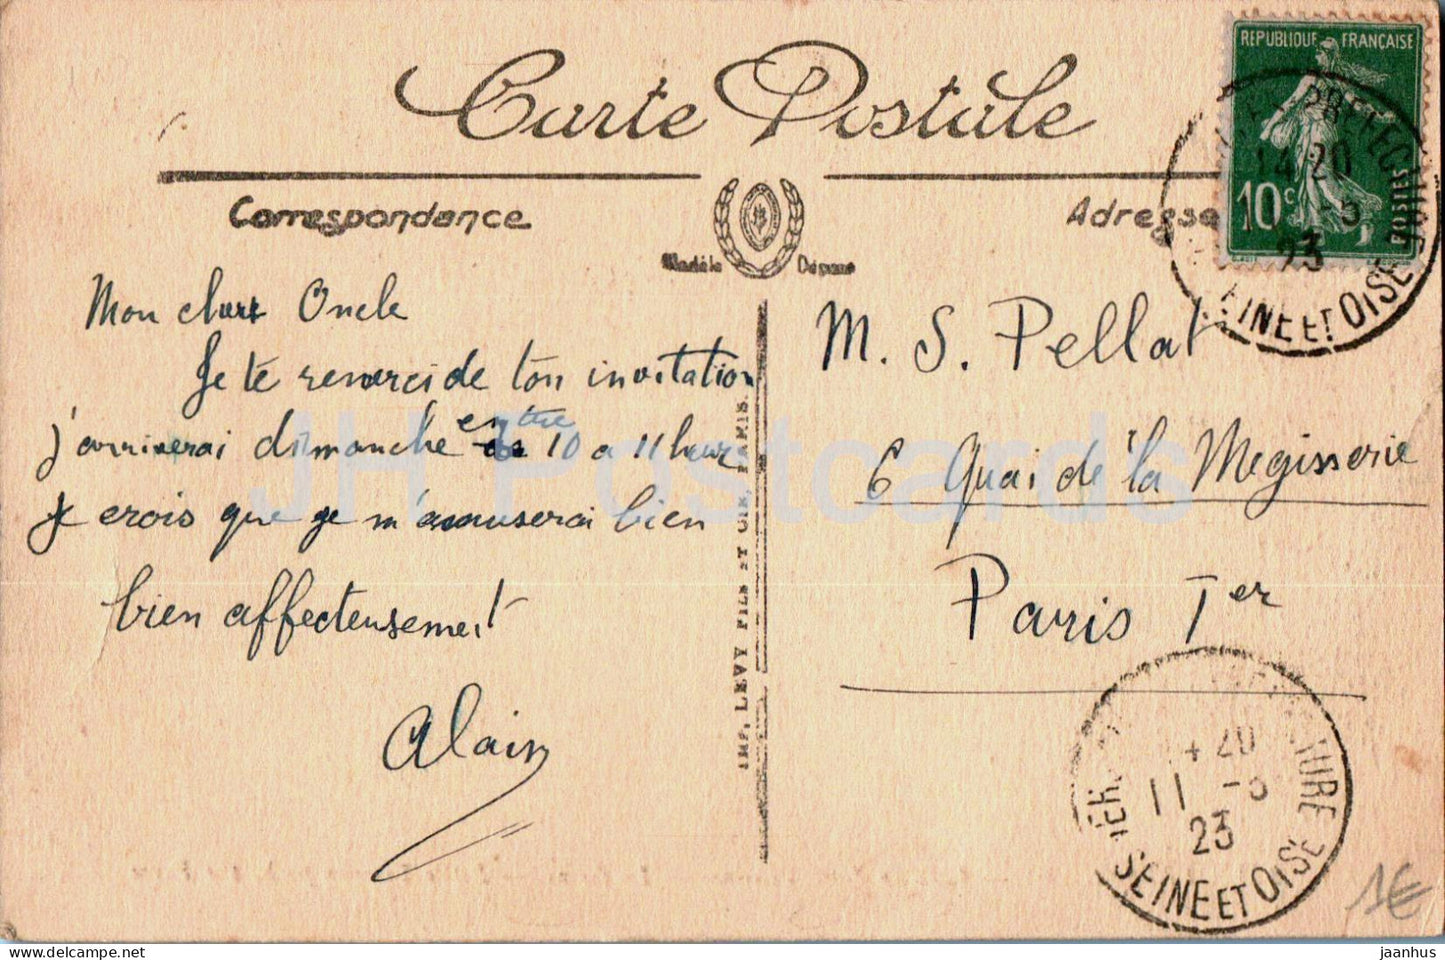 Carte Postale
Correspondance
Adresse
Modèle Déposé
REPUBLIQUE FRANÇAISE
10c
PREFECTURE
14 20
-3
23
SEINE ET OISE
Mon cher Oncle
Je te remercie de ton invitation
j'arriverai dimanche entre 10 a 11 heur
Je crois que je m'amuserai bien
bien affecteusement
Alain
M. S. Pellat
6 Quai de la Megisserie
Paris 1er
IMP. LEVY FILS ET CIE. PARIS.
20
11 -3
23
SEINE ET OISE
1€
JH Postcards
jaanhus